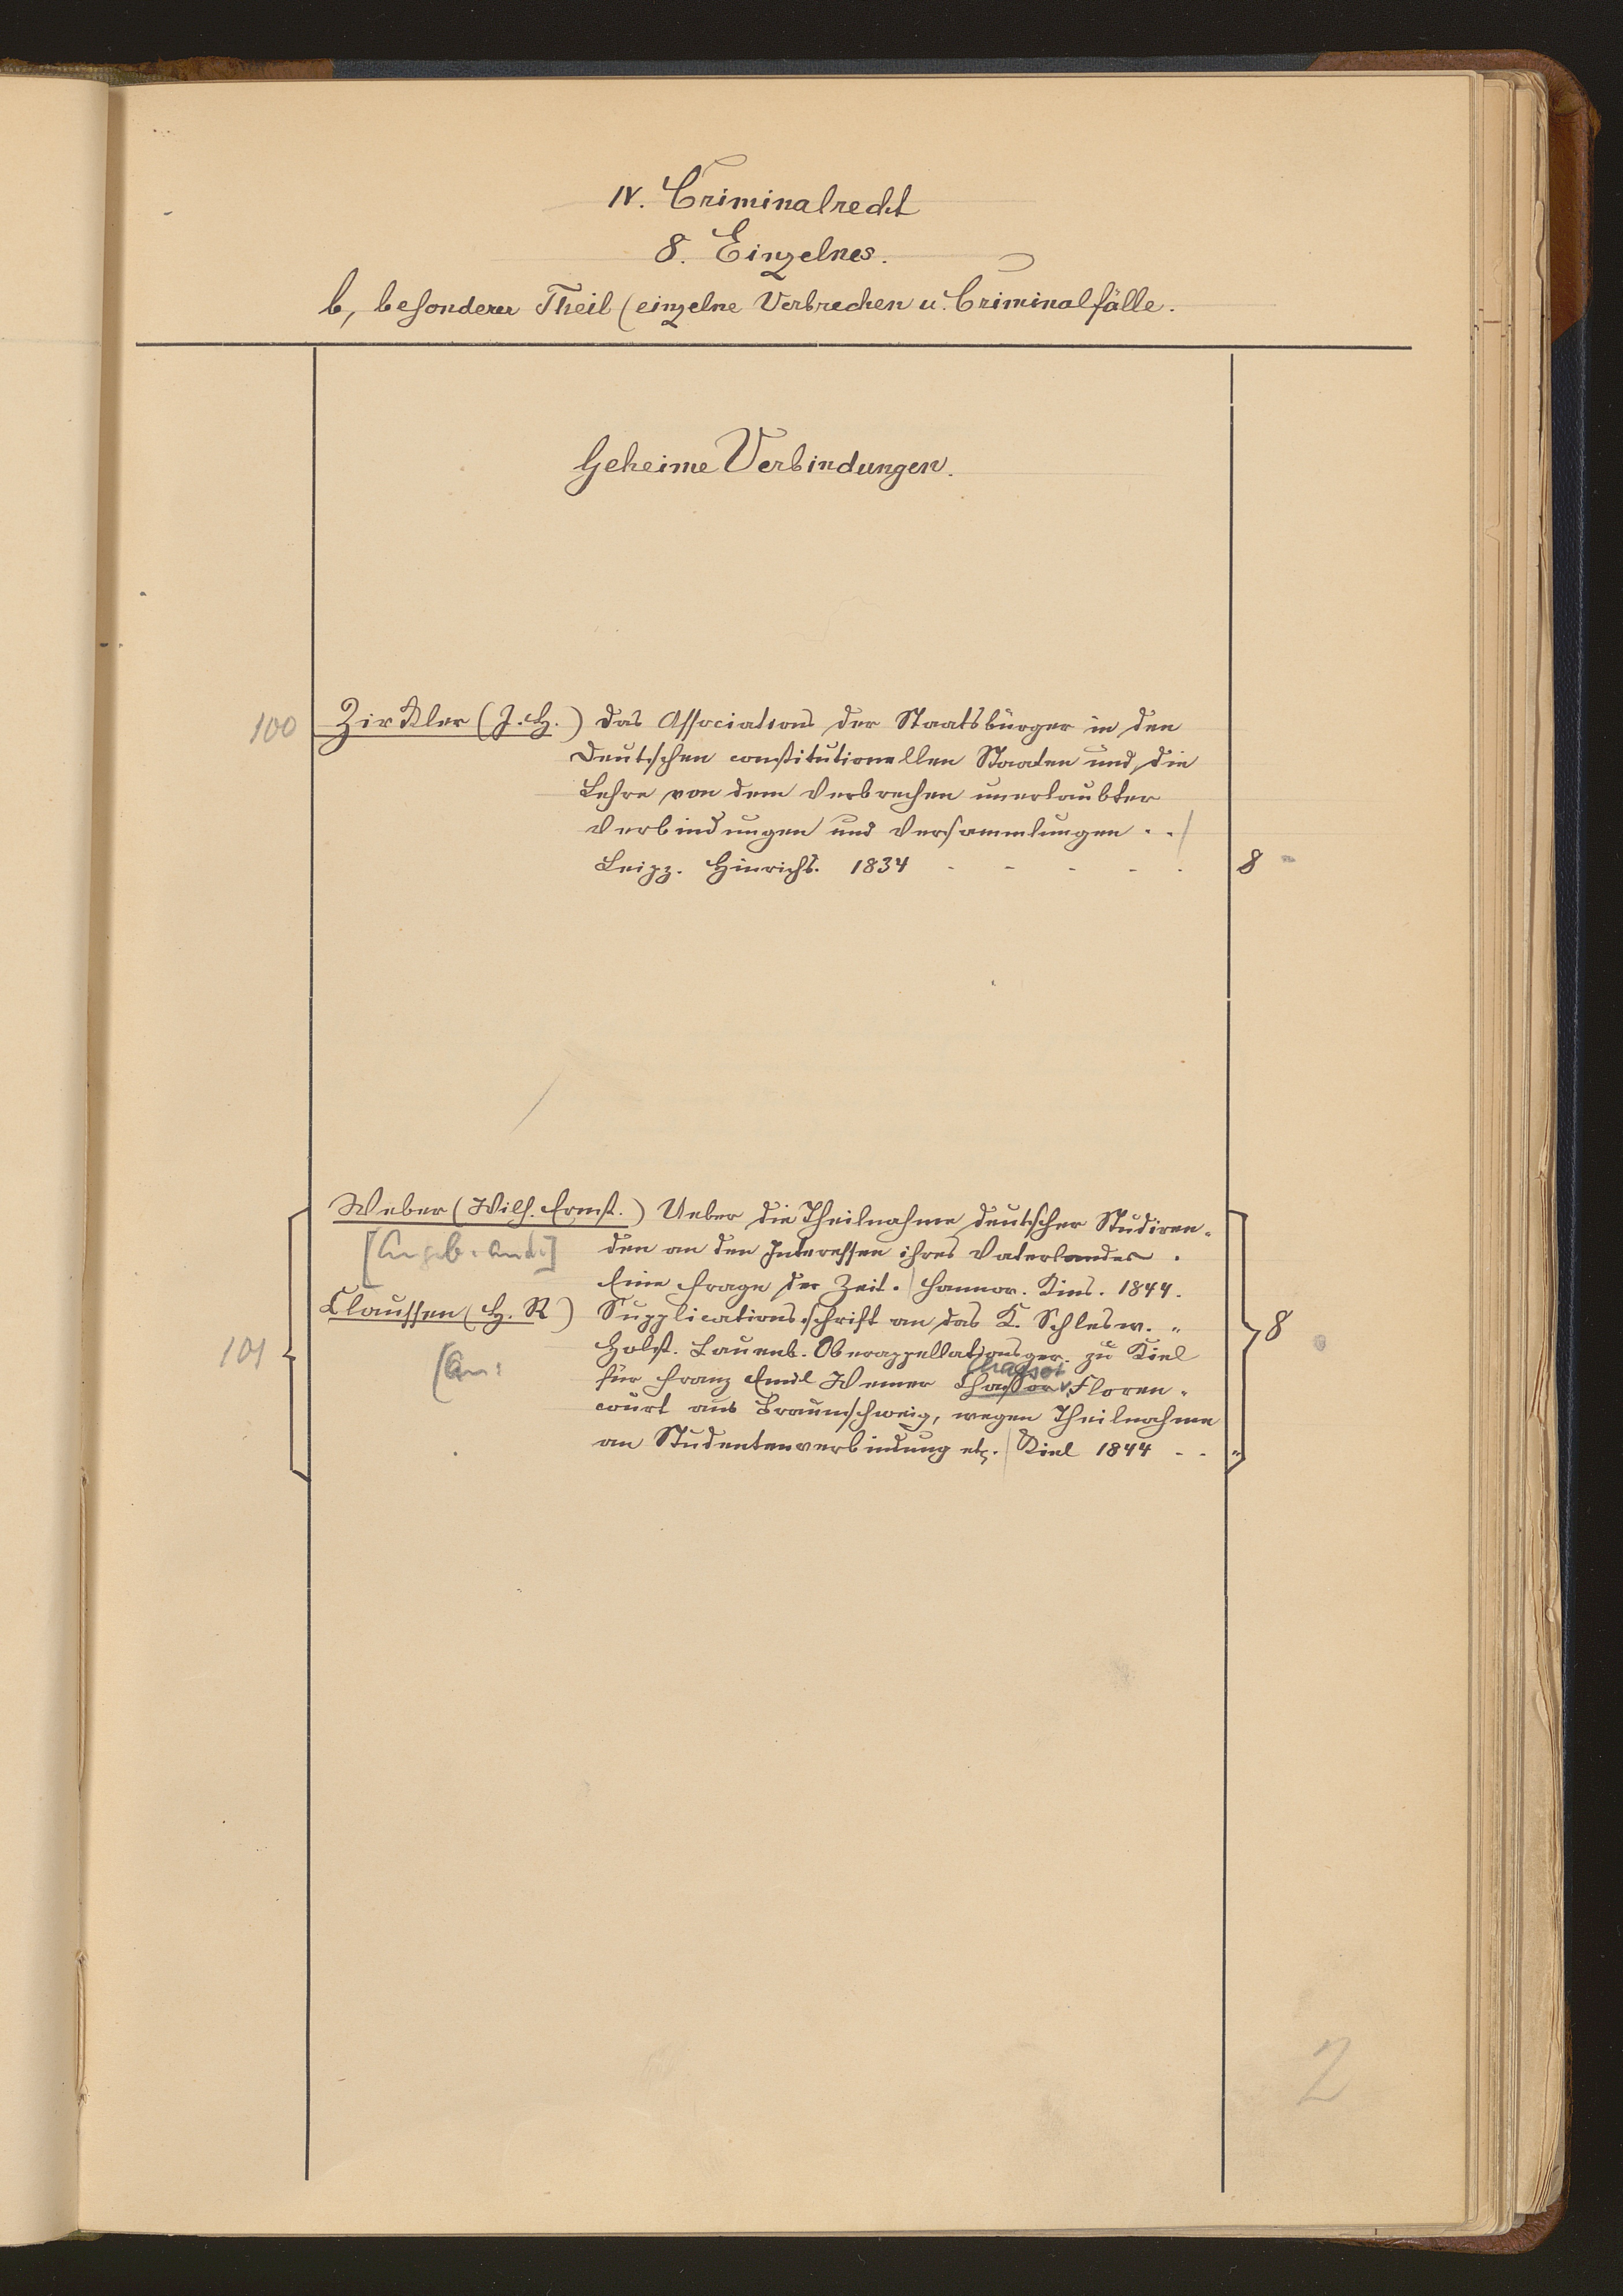 IV. Criminalrecht
8. Einzelnes.
b, besonderer Theil (einzelne Verbrechen u. Criminalfälle.
Geheime Verbindungen.
100 Zirkler (J. H.) das Associations der Staatsbürger in den
deutschen constitutionellen Staaten und die
Lehre von dem Verbrechen unerlaubter
Verbindungen und Versammlungen . .
Leipz. Hinrichs. 1834 - - - - . 8
Weber (Wilh. Ernst.) Ueber die Theilnahme deutscher Studiren-
den an den Interessen ihres Vaterlandes .
Eine Frage der Zeit. Hannov. Kius. 1844.
Claussen (H. R) Supplicationsschrift an das K. Schlesw. "
101 Holst. Lauenb. Oberappellationsger. zu Kiel 8
für Franz Emil Werner v. Floren-
court aus Braunschweig, wegen Theilnahme
an Studentenverbindung etc. Kiel 1844 - - "
2